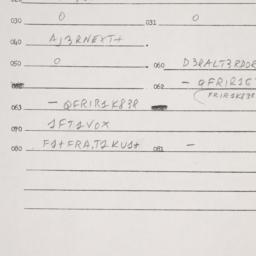 030 0 031 0
040 A;3RNEXT+
050 0 060 D3RALT3RDOR
062 - QFRIR1K
(FRIR1K83R
063 - QFRIR1K83R
070 1FT1VOX
080 F1+FRA,T1KU1+ 081 -